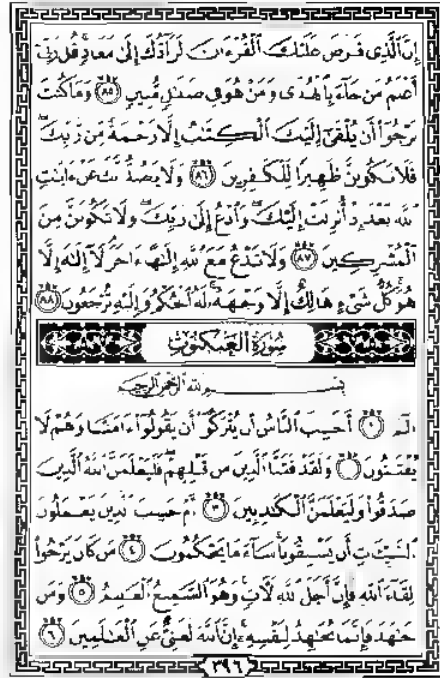 إِنَّ ٱلَّذِى فَرَضَ عَلَيْكَ ٱلْقُرْءَانَ لَرَآدُّكَ إِلَىٰ مَعَادٍ قُل رَّبِّىٓ
أَعْلَمُ مَن جَآءَ بِٱلْهُدَىٰ وَمَنْ هُوَ فِى ضَلَٰلٍ مُّبِينٍ ٨٥ وَمَا كُنتَ
تَرْجُوٓا۟ أَن يُلْقَىٰٓ إِلَيْكَ ٱلْكِتَٰبُ إِلَّا رَحْمَةً مِّن رَّبِّكَ
فَلَا تَكُونَنَّ ظَهِيرًا لِّلْكَٰفِرِينَ ٨٦ وَلَا يَصُدُّنَّكَ عَنْ ءَايَٰتِ
ٱللَّهِ بَعْدَ إِذْ أُنزِلَتْ إِلَيْكَ وَٱدْعُ إِلَىٰ رَبِّكَ وَلَا تَكُونَنَّ مِنَ
ٱلْمُشْرِكِينَ ٨٧ وَلَا تَدْعُ مَعَ ٱللَّهِ إِلَٰهًا ءَاخَرَ لَآ إِلَٰهَ إِلَّا
هُوَ كُلُّ شَىْءٍ هَالِكٌ إِلَّا وَجْهَهُۥ لَهُ ٱلْحُكْمُ وَإِلَيْهِ تُرْجَعُونَ ٨٨
سُورَةُ ٱلْعَنكَبُوتِ
بِسْمِ ٱللَّهِ ٱلرَّحْمَٰنِ ٱلرَّحِيمِ
الٓمٓ ١ أَحَسِبَ ٱلنَّاسُ أَن يُتْرَكُوٓا۟ أَن يَقُولُوٓا۟ ءَامَنَّا وَهُمْ لَا
يُفْتَنُونَ وَلَقَدْ فَتَنَّا ٱلَّذِينَ مِن قَبْلِهِمْ فَلَيَعْلَمَنَّ ٱللَّهُ ٱلَّذِينَ
صَدَقُوا۟ وَلَيَعْلَمَنَّ ٱلْكَٰذِبِينَ ٣ أَمْ حَسِبَ ٱلَّذِينَ يَعْمَلُونَ
ٱلسَّيِّـَٔاتِ أَن يَسْبِقُونَا سَآءَ مَا يَحْكُمُونَ ٤ مَن كَانَ يَرْجُوا۟
لِقَآءَ ٱللَّهِ فَإِنَّ أَجَلَ ٱللَّهِ لَءَاتٍ وَهُوَ ٱلسَّمِيعُ ٱلْعَلِيمُ ٥ وَمَن
جَٰهَدَ فَإِنَّمَا يُجَٰهِدُ لِنَفْسِهِۦٓ إِنَّ ٱللَّهَ لَغَنِىٌّ عَنِ ٱلْعَٰلَمِينَ ٦
٣٩٦